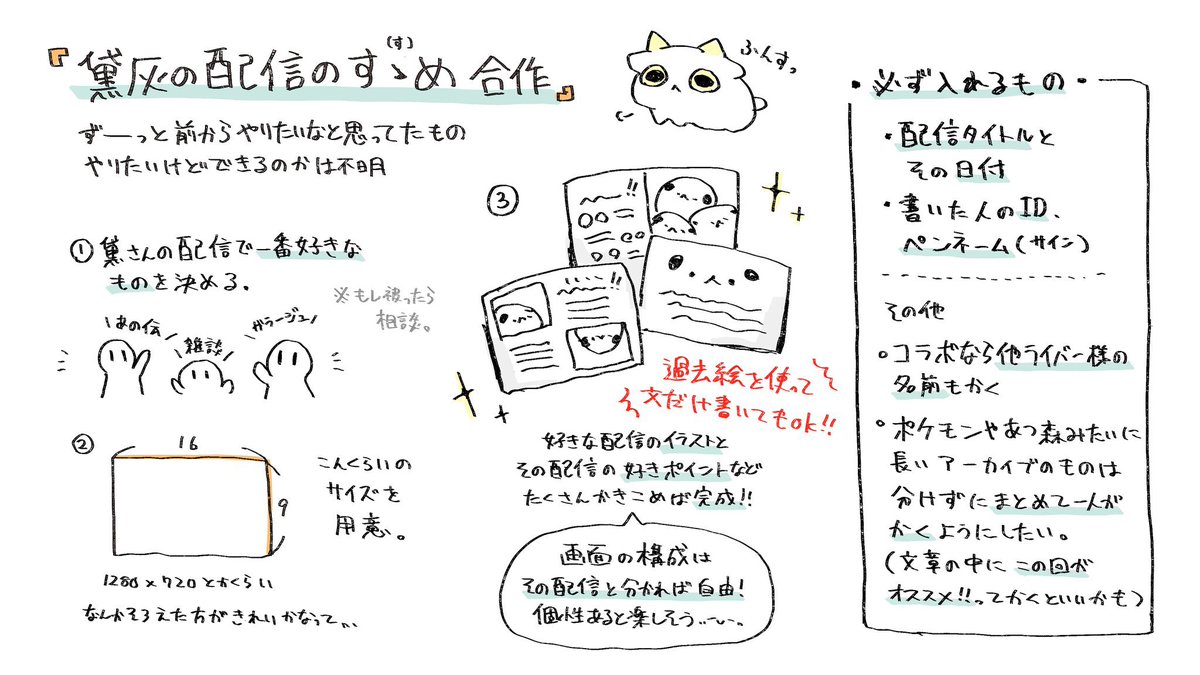 『黛灰の配信のすゝめ(す) 合作』
ずーーっと前からやりたいなと思ってたもの
やりたいけどできるのかは不明
ふんすっ
① 黛さんの配信で一番好きな
ものを決める。
※もし被ったら
相談。
\あの伝/
\雑談/
ガラージュ/
②
16
9
こんくらいの
サイズを
用意。
1280×720とかくらい
なんかそろえた方がきれいかなって、、
③
!!
!!
過去絵を使って
文だけ書いてもok!!
好きな配信のイラストと
その配信の好きポイントなど
たくさんかきこめば完成!!
画面の構成は
その配信と分かれば自由!
個性あると楽しそう
・必ず入れるもの・
・配信タイトルと
その日付
・書いた人のID、
ペンネーム(サイン)
その他
○コラボなら他ライバー様の
名前もかく
○ポケモンやあつ森みたいに
長いアーカイブのものは
分けずにまとめて一人が
かくようにしたい。
(文章の中にこの回が
オススメ!!ってかくといいかも)